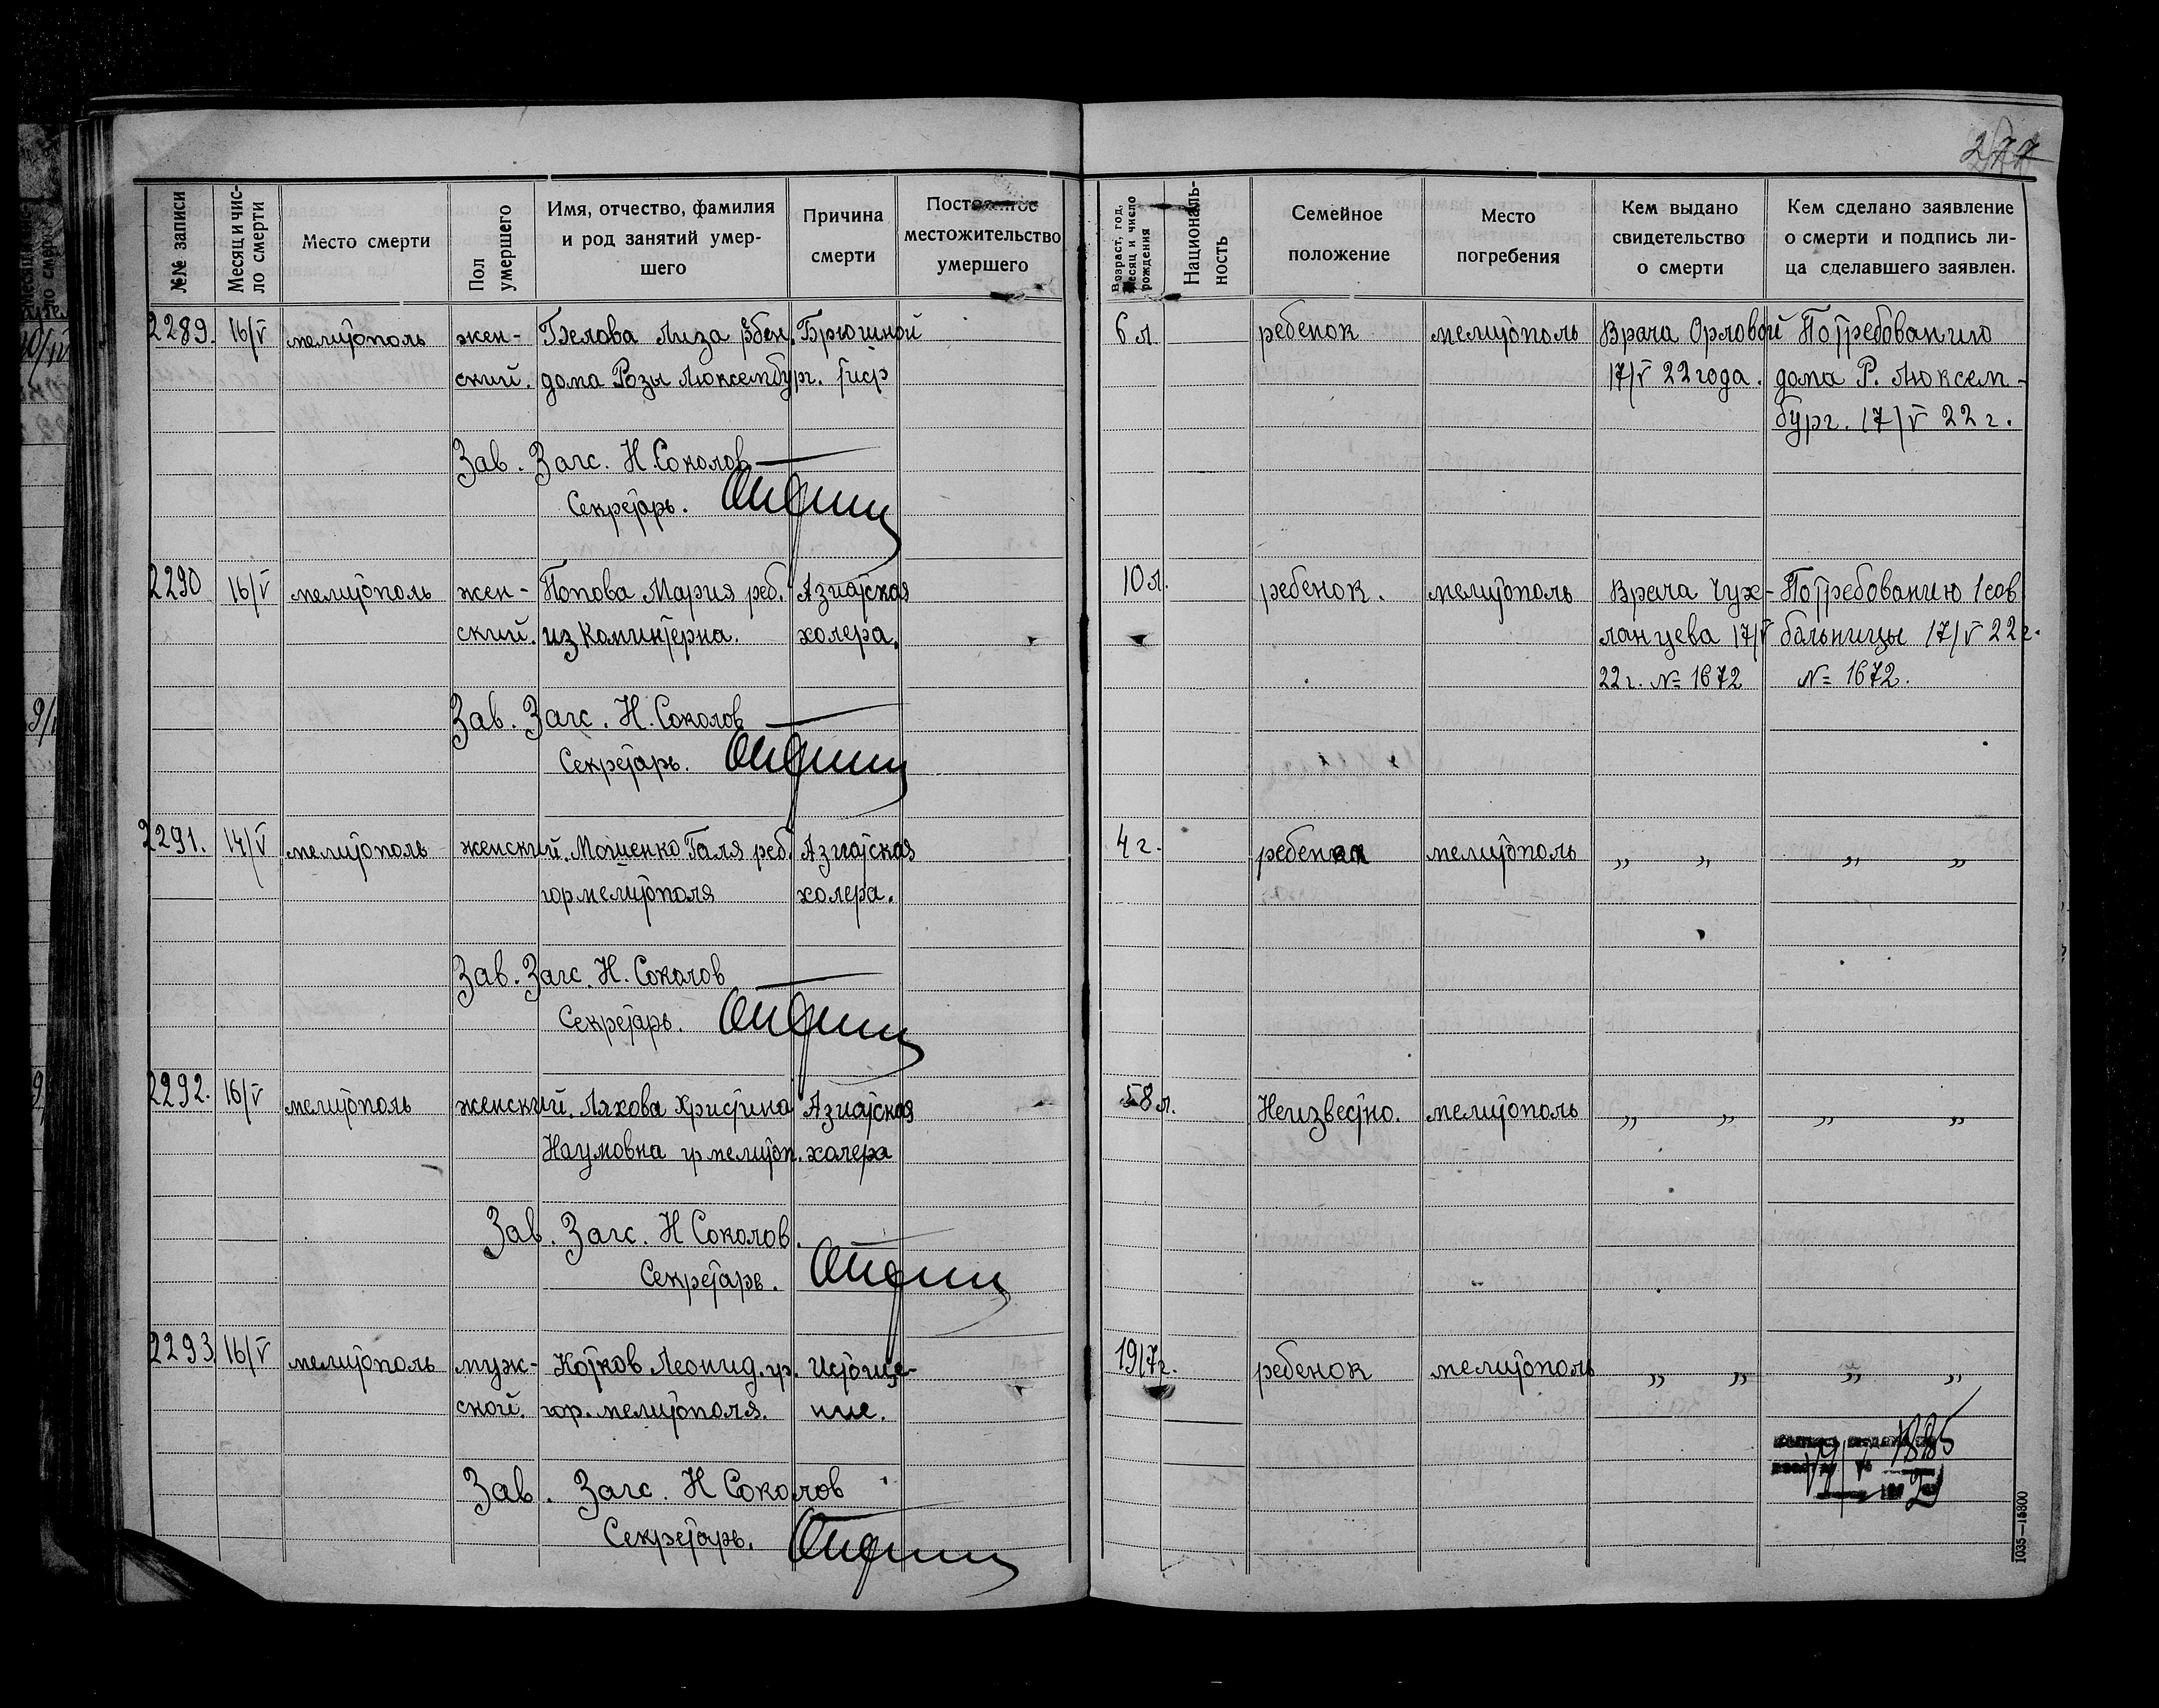 277
№№ записи
Месяц и чис-
ло смерти
Место смерти
Пол
умершего
Имя, отчество, фамилия
и род занятий умер-
шего
Причина
смерти
Постоянное
местожительство
умершего
Возраст, год,
месяц и число
рождения
Националь-
ность
Семейное
положение
Место
погребения
Кем выдано
свидетельство
о смерти
Кем сделано заявление
о смерти и подпись ли-
ца сделавшего заявлен.
2289. 16/V мелитополь жен- Белова Лиза Брюшной 6 л. ребенок мелитополь Врача Орловой По требованию
ский. дома Розы Люксембург. тиф 17/V 22 года. дома Р. Люксем-
бург. 17/V 22 г.
Зав. Загс. Н. Соколов
Секретарь.
2290 16/V мелитополь жен- Попова Мария реб. Азиатская 10 л. ребенок. мелитополь Врача Чух- По требованию 1 сов
ский. из Коминтерна. холера. ланцева 17/V больницы 17/V 22 г.
22 г. № 1672 № 1672.
Зав. Загс. Н. Соколов
Секретарь.
2291. 14/V мелитополь женский. Мошенко Галя реб. Азиатская 4 г. ребенок мелитополь „ „ „ „
гор мелитополя холера.
Зав. Загс. Н. Соколов
Секретарь.
2292. 16/V мелитополь женский. Ляхова Христина Азиатская 58 л. Неизвестно. мелитополь „ „ „ „
Наумовна гр мелитоп. холера
Зав. Загс. Н Соколов.
Секретарь.
2293. 16/V мелитополь муж- Котков Леонид. гр. Истоще- 1917 г. ребенок мелитополь „ „ „ „
ской. гор. мелитополя. ние.
Зав. Загс. Н Соколов
Секретарь.
1885
1035—15800